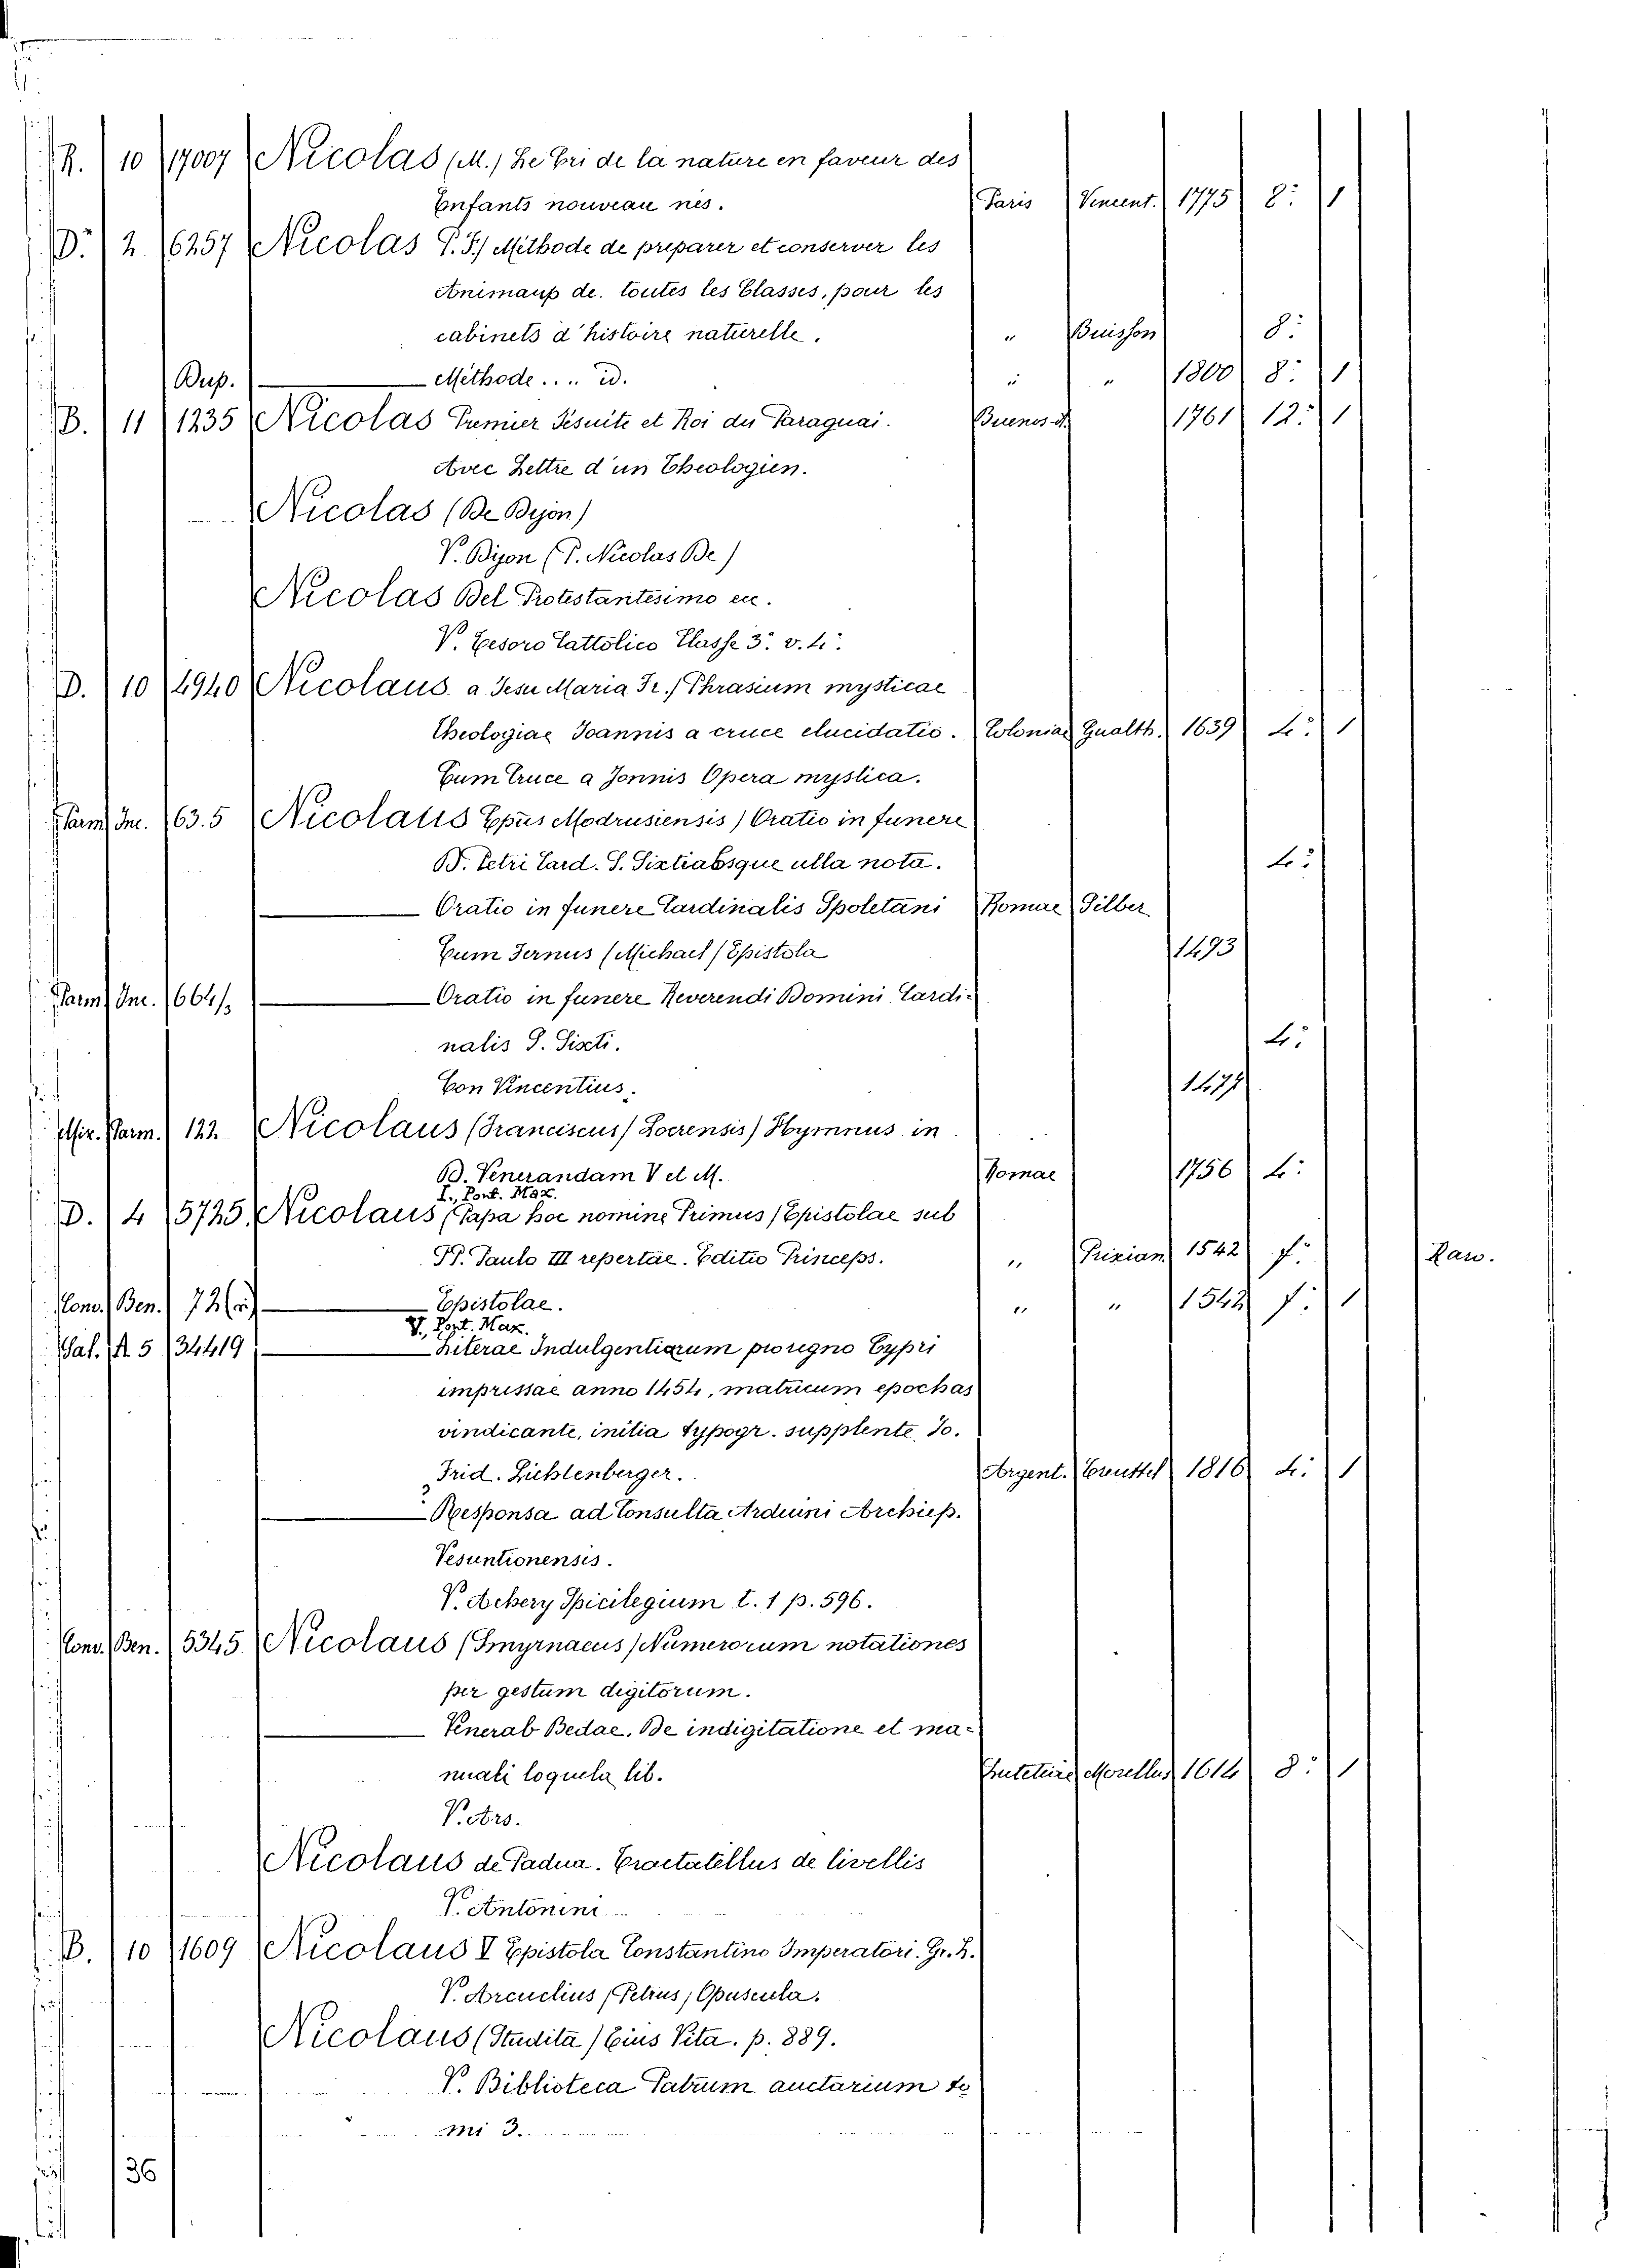 R. 10 17007 Nicolas (M.) Le Cri de la nature en faveur des
Enfants nouveau nés. Paris Vincent. 1775 8: 1
D. 2 6257 Nicolas P. F.) Méthode de preparer et conserver les
Animaux de toutes les Classes, pour les
cabinets d'histoire naturelle. " Buisson 8:
Dup. Méthode .... id. " " 1800 8: 1
B. 11 1235 Nicolas Premier Jesuite et Roi du Paraguai. Buenos A. 1761 12: 1
Avec Lettre d'un Theologien.
Nicolas (De Dijon)
V. Dijon (P. Nicolas De)
Nicolas Del Protestantesimo ec.
V. Tesoro Cattolico Classe 3.ª v. 4.º
D. 10 4940 Nicolaus a Jesu Maria Fr.) Phrasium mysticae
Theologiae Joannis a cruce elucidatio. Coloniae Gualth. 1639 4: 1
Cum Cruce a Jonnis Opera mystica.
Parm. Inc. 63.5 Nicolaus Epus Modrusiensis) Oratio in funere
D. Petri Card. S. Sixti absque ulla nota. 4:
Oratio in funere Cardinalis Spoletani Romae Silber
Cum Fernus (Michael) Epistola 1493
Parm. Inc. 664/. Oratio in funere Reverendi Domini Cardi-
nalis S. Sixti. 4:
Con Vincentius. 1477
Mir. Parm. 122 Nicolaus (Franciscus) Locrensis) Hymnus in
D. Venerandam V et M. Romae 1756 4:
I., Pont. Max.
D. 4 5725 Nicolaus (Papa hoc nomine Primus) Epistolae sub
PP. Paulo III repertae. Editio Princeps. " Prixian 1542 f: Raw.
Conv. Ben. 72 Epistolae. " " 1542 f: 1
V., Pont. Max.
Sal. A 5 34419 Literae Indulgentiarum pro regno Cypri
impressae anno 1454, matricum epochas
vindicante, initia typogr. supplente Jo.
Frid. Lichtenberger. Argent. Treuttel 1816 4: 1
Responsa ad Consulta Arduini Archiep.
Vesuntionensis.
V. Achery Spicilegium t. 1 p. 596.
Conv. Ben. 5345 Nicolaus (Smyrnaeus) Numerorum notationes
per gestum digitorum.
Venerab Bedae. De indigitatione et ma-
nuali loquela lib. Lutetiae Morellus 1614 8: 1
V. Ars.
Nicolaus de Padua. Tractatellus de livellis
V. Antonini
B. 10 1609 Nicolaus I Epistola Constantino Imperatori. Gr. L.
V. Arcudius (Petrus) Opuscula.
Nicolaus (Studita) Eius Vita. p. 889.
V. Biblioteca Patrum auctarium to
mi 3.
36